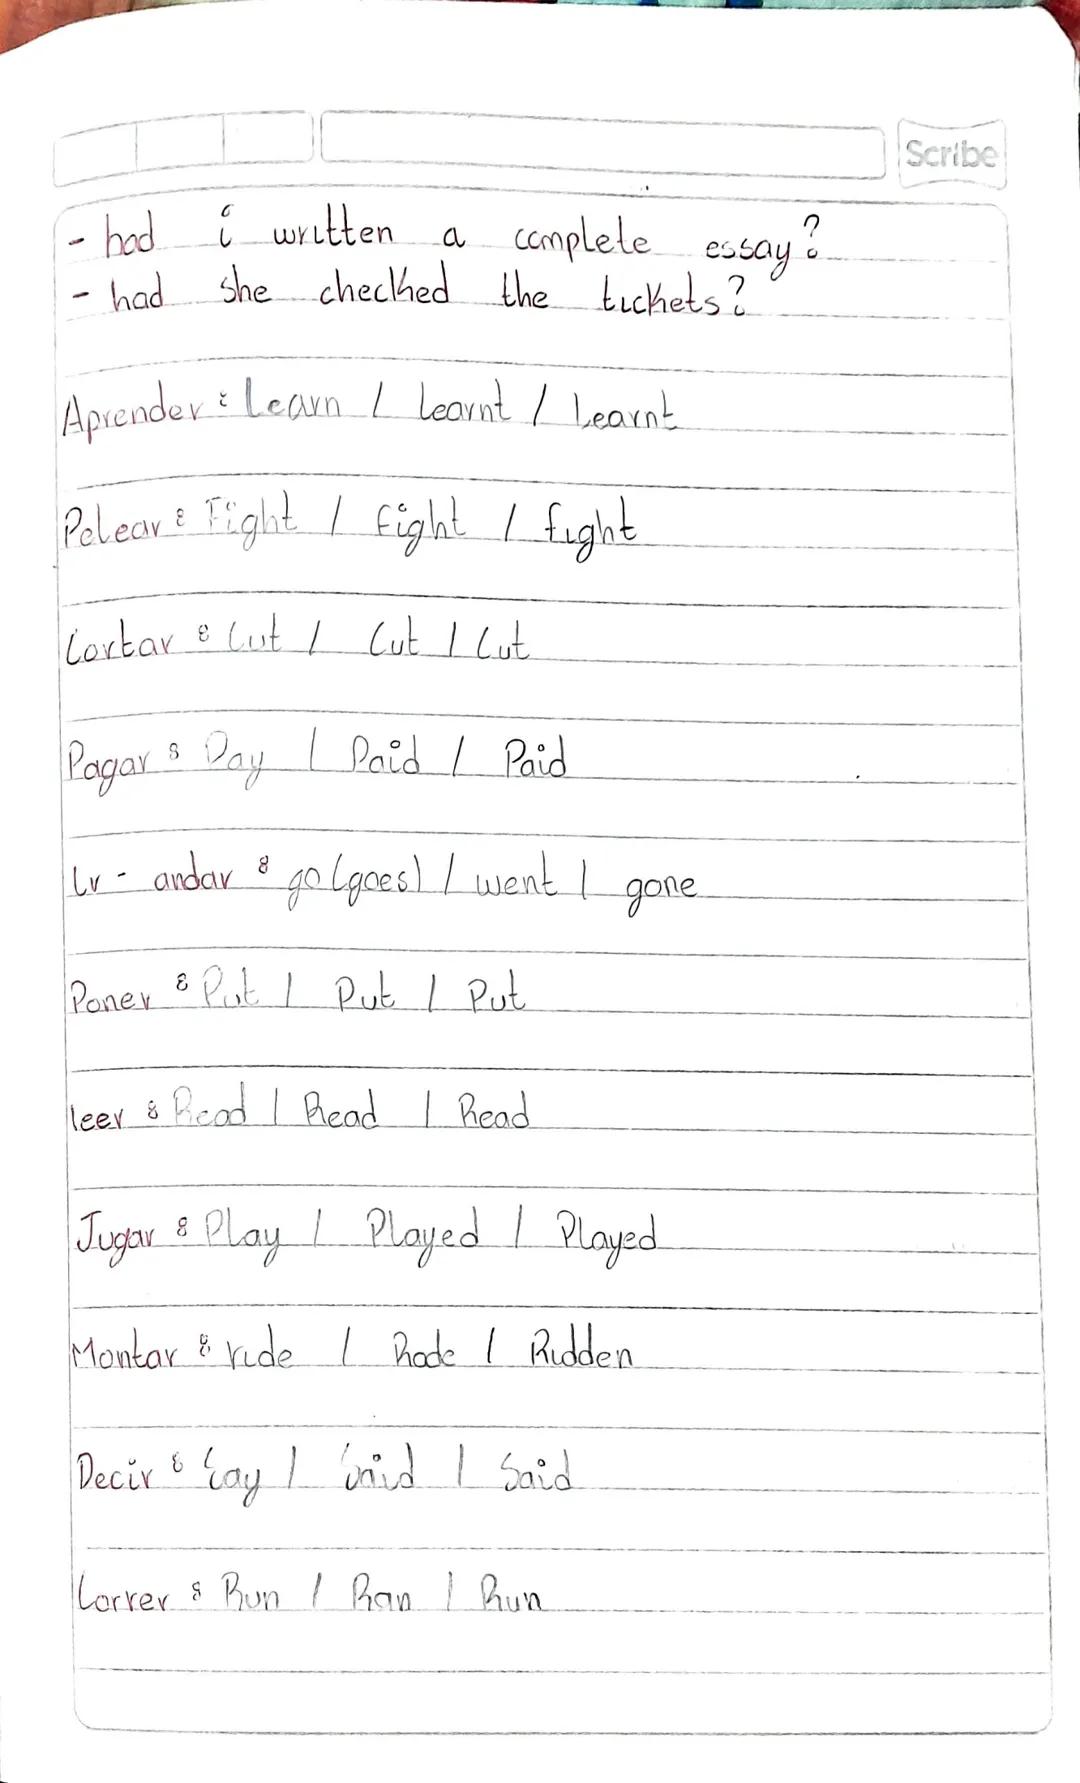 Scribe
- had i written a complete essay?
- had she checked the tickets?
Aprender: Learn / Learnt / Learnt
Pelear: Fight / fight / fight
Cortar: Cut / Cut / Cut
Pagar: Pay / Paid / Paid
Ir - andar: go (goes) / went / gone
Poner: Put / Put / Put
leer: Read / Read / Read
Jugar: Play / Played / Played
Montar: ride / Rode / Ridden
Decir: Say / Said / Said
Correr: Run / Ran / Run